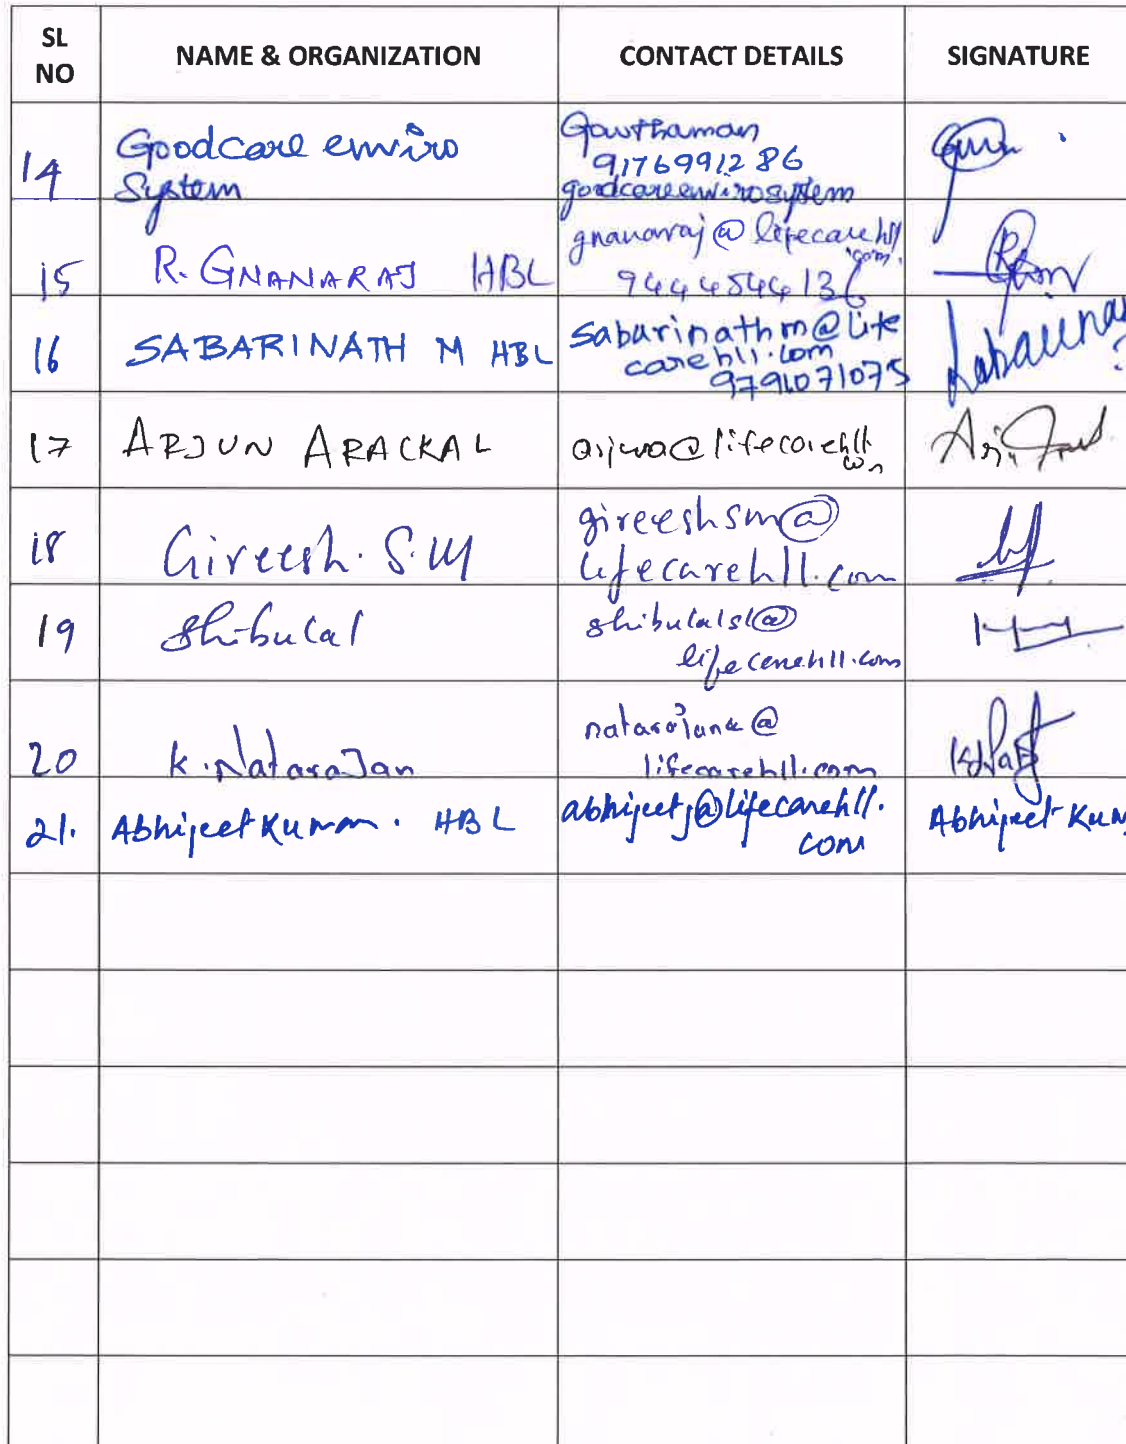 SL NO NAME & ORGANIZATION CONTACT DETAILS SIGNATURE
14 Goodcare enviro System
Gowthaman
9176991286
goodcareenvirosystem
15 R. GNANARAJ HBL
gnanaraj@lifecarehll.com.
9444544136
16 SABARINATH M HBL
sabarinathm@life
carehll.com
9791071075
17 ARJUN ARACKAL
arjuna@lifecarehll
com
18 Gireesh. S.M
gireeshsm@
lifecarehll.com
19 Shibulal
shibulalsl@
lifecarehll.com
20 K. Natarajan
natarajank@
lifecarehll.com
21. Abhijeet Kumar. HBL
abhijeetj@lifecarehll.
com
Abhijeet Kum